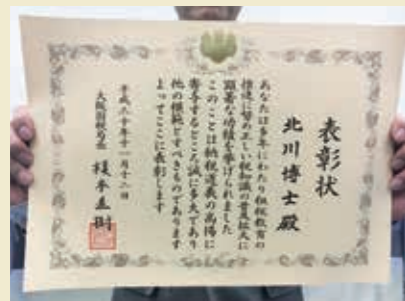 表彰状
北川博士殿
あなたは多年にわたり租税教育の
推進に努め正しい税知識の普及拡大に
顕著な功績を挙げられました
このことは納税道義の高揚に
寄与するところ誠に多大であり
他の模範とすべきものであります
よってここに表彰します
平成三十年十一月十二日
大阪国税局長